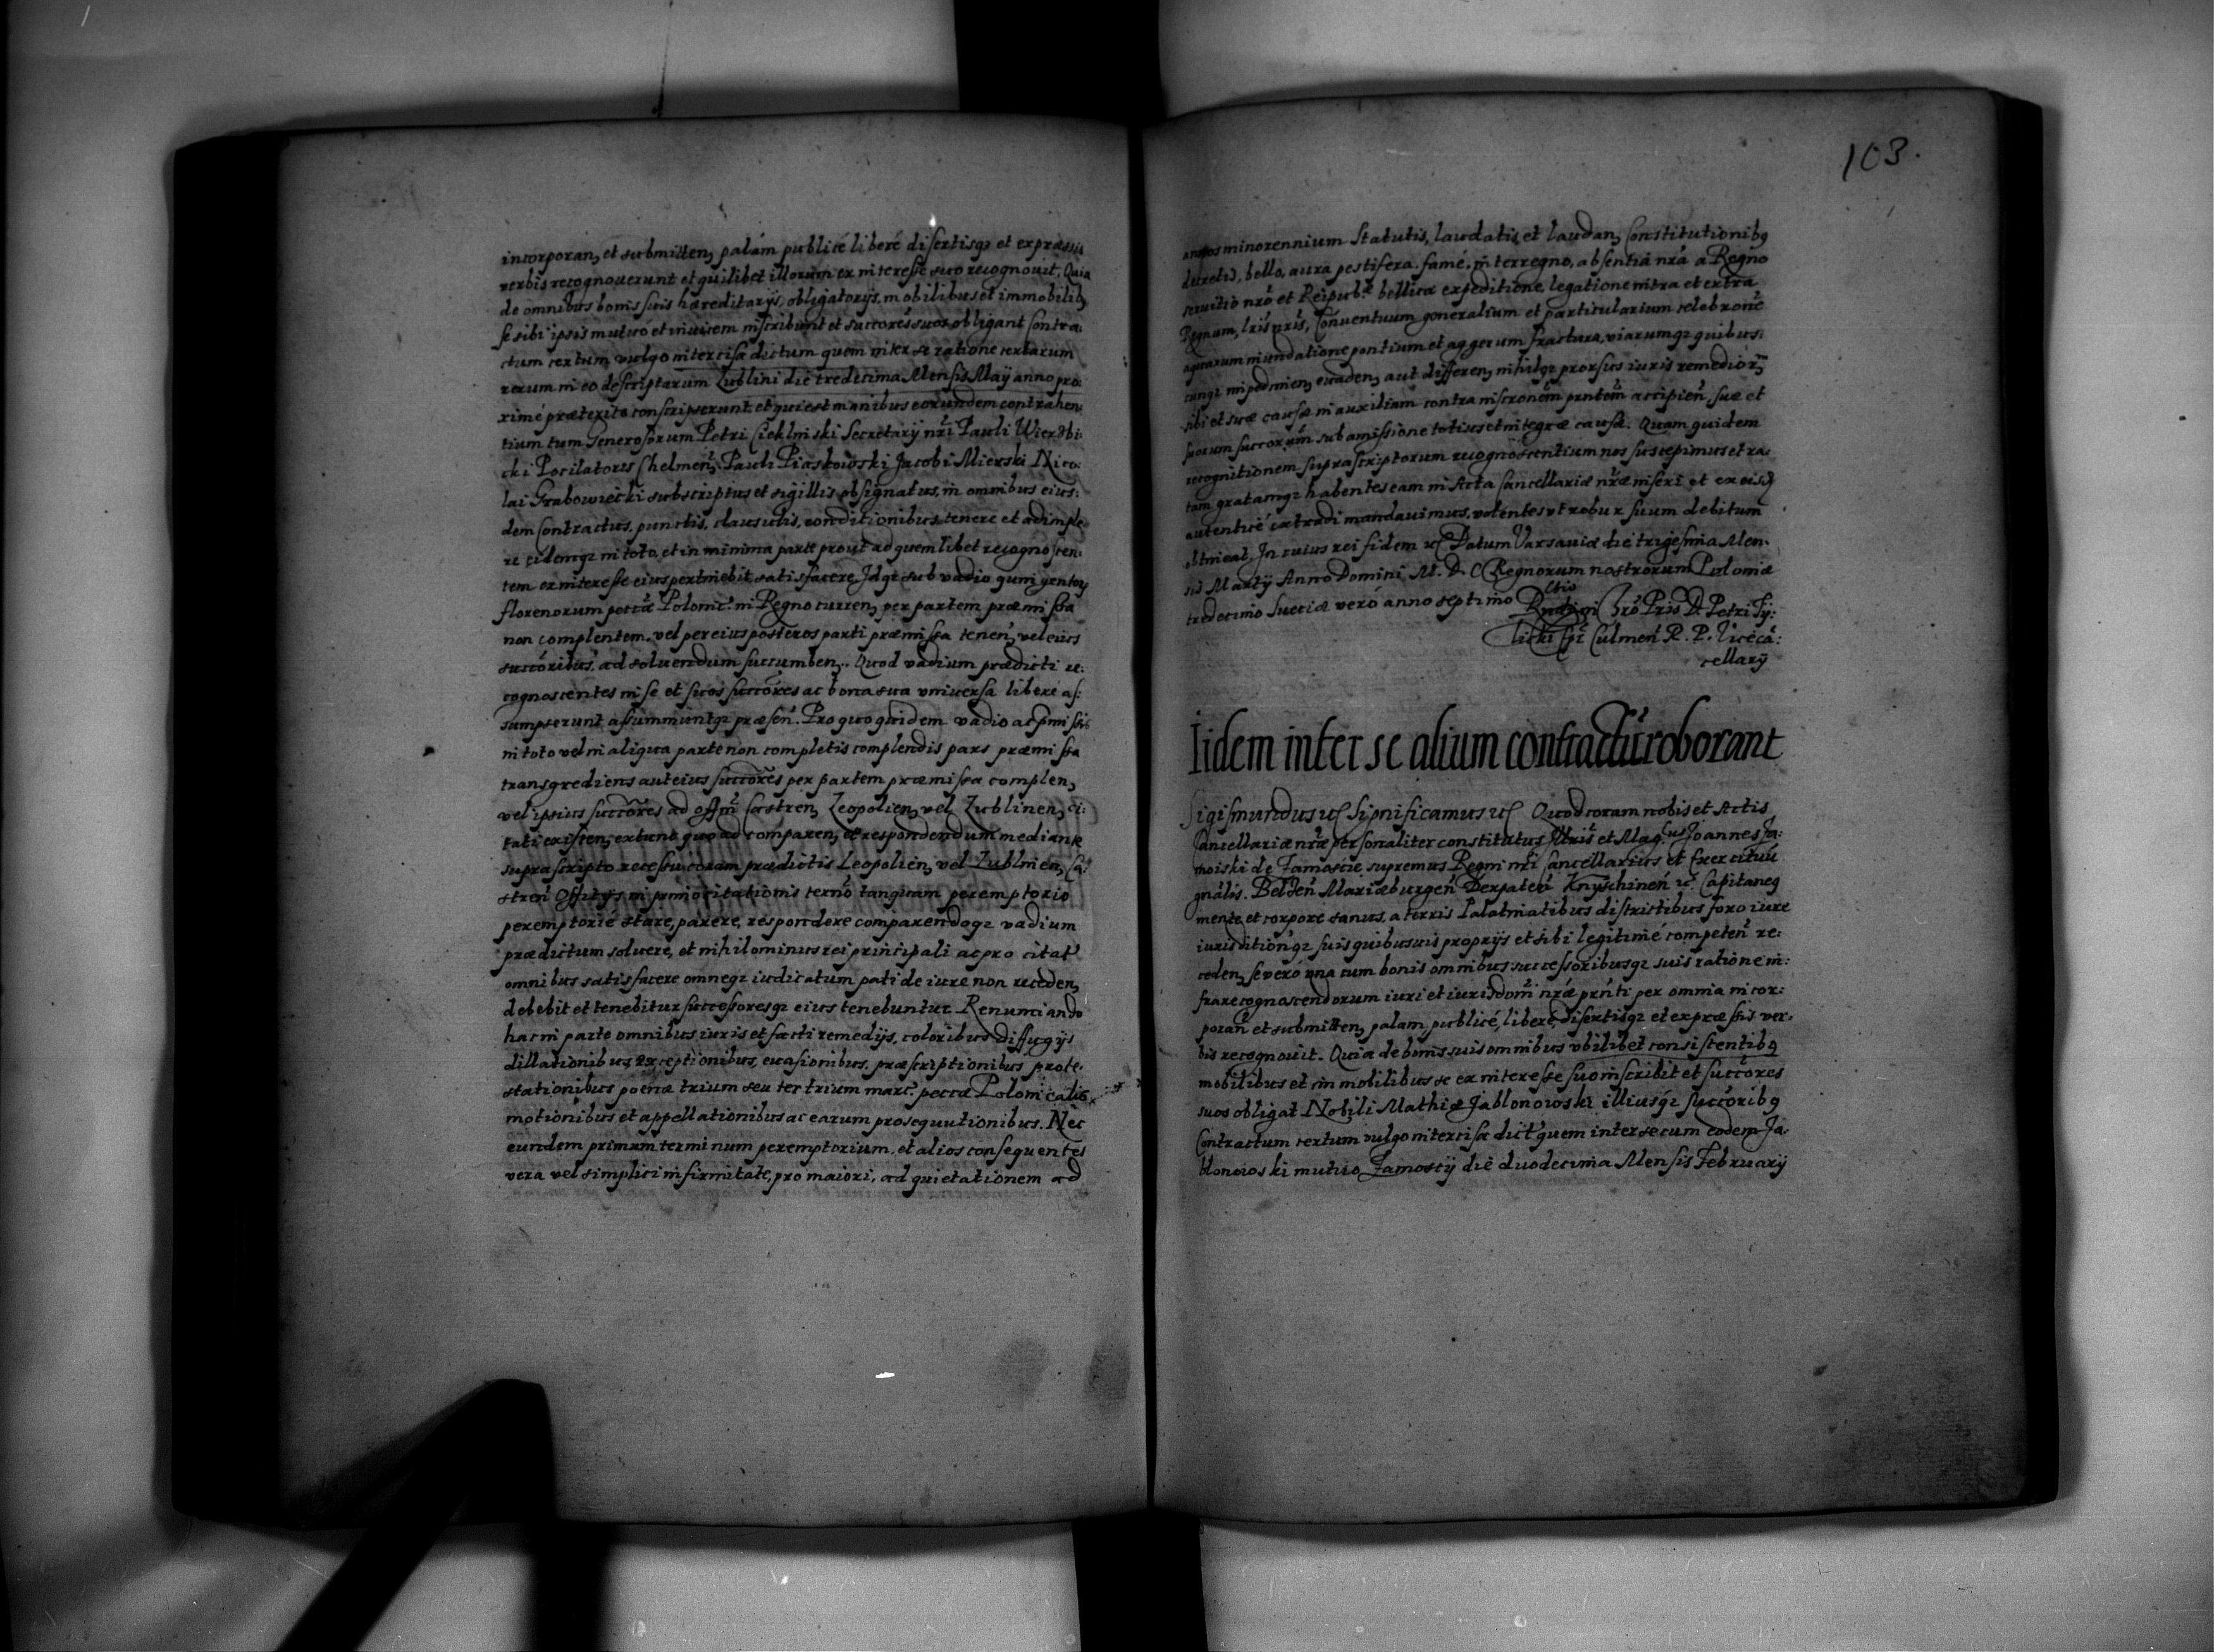 incorporan, et submitten, palám publicé liberé disertisq3 et expressis
verbis recognouerunt et quilibet illorum ex interesse suo recognouit. Quia
de omnibus bonis suis hæreditarijs, obligatorijs, mobilibus et immobilib,
se sibi ipsis mutuó et inuicem inscribunt et succores suos obligant Contra:
ctum certum vulgo intercisa dictum quem inter se ratione certarum
rerum in eo descriptarum Lublini die tredecima Mensis Maÿ anno pro:
ximé præterito conscripserunt, et qui est manibus eorundem contrahen:
tium tum Generosorum Petri Cieklinski Secretarÿ nrī Pauli Wierzbi:
cki Pocilatoris Chelmen, Pauli Piaskowski Jacobi Mierski Nico:
lai Grabowiecki subscriptus et sigillis obsignatus, in omnibus eius:
dem Contractus, punctis, clausulis, conditionibus, tenere et adimple
re eidemq3 in toto, et in minima parte prout ad quemlibet recognoscen:
tem ex interesse eius pertinebit satisfacere. Idq3 sub vadio quingentor
florenorum peccæ Polonic. in Regno curren, per partem præmissa
non complentem, vel per eius posteros parti præmissa tenen, vel eius
succoribus, ad soluendum succumben. Quod vadium prædicti re:
cognoscentes in se et suos succores ac bona sua vniuersa liberé as:
sumpserunt assummuntq3 præsen. Pro quo quidem vadio ac pmissis
in toto vel in aliqua parte non completis complendis pars præmissa
transgrediens aut eius succores per partem præmissa complen,
vel ipsius succores ad offm Castren, Leopolien, vel Lublinen, ci:
tati existen, extunc quo ad comparen, et respondendum mediante
suprascripto recessu coram prædictis Leopolien, vel Lublinen, Ca:
stren Officÿs in primo citationis termo tanquam peremptorio
peremptorié stare, parere, respondere comparendoq3 vadium
prædictum soluere, et nihilominus rei principali ac pro citat
omnibus satisfacere omneq3 iudicatum pati de iure non receden,
debebit et tenebitur successoresq3 eius tenebuntur. Renunciando
hac in parte omnibus iuris et facti remedijs, coloribus diffugijs
dillationibus, exceptionibus, euasionibus, præscriptionibus prote:
stationibus poenæ trium seu ter trium marc. peccæ Polonicalis
motionibus et appellationibus ac earum prosequutionibus. Nec
eundem primum terminum peremptorium, et alios consequentes
vera vel simplici infirmitate, pro maiori, ad quietationem ad
103.
annos minorennium Statutis, laudatis, et laudan, Constitutionib9
decretis, bello, aura pestifera, famé, interregno, absentiá nrá á Regno
seruitio nrō et Reipub. bellica expeditione, legatione intra et extra
Regnum, lris nris, Conuentuum generalium et particularium celebrone
aquarum inundatione pontium et aggerum fractura, viarumq3 quibus:
cunq3 impedimen, euaden, aut differen, nihilq3 prorsus iuris remedior
sibi et suæ causæ in auxilium contra inscronem pntem accipien, suæ et
suorum succorum sub amissione totius et integræ causæ. Quam quidem
recognitionem suprascriptorum recognoscentium nos suscepimus et ra:
tam gratamq3 habentes eam in Acta Cancellariæ nræ inseri et ex eisd
autenticé extradi mandauimus, volentes vt robur suum debitum
obtineat. In cuius rei fidem etc Datum Varsauiæ die trigesima Men:
sis Martÿ Anno Domini M. D. C Regnorum nostrorum Poloniæ
tredecimo Sueciæ vero anno septimo
Pris D. Petri Tÿ:
licki Culmen R. P. Vicecā:
cellarÿ
Iidem inter se alium contractū roborant
Sigismundus etc Significamus etc Quod coram nobis et Actis
Cancellariæ nræ personaliter constitutus Illris et Mag.cus Joannes Za:
moiski de Zamoscie supremus Regni nrī Cancellarius et Exercituū
gnālis. Belzen Mariæburgen Derpaten Knyschinen etc Capitane9
mente et corpore sanus, a terris Palatinatibus districtibus foro iure
iurisditionq3 suis quibusuis proprijs et sibi legitimé competen re:
ceden, se vero vna cum bonis omnibus successoribusq3 suis ratione in:
fra recognoscendorum iuri et iurisdom nræ prnti per omnia incor:
poran et submitten, palam, publicé, liberé, disertisq3 et expressis ver:
bis recognouit. Quia de bonis suis omnibus vbilibet consistentib9
mobilibus et inmobilibus se ex interesse suo inscribit et succores
suos obligat Nobili Mathiæ Jablonowski illiusq3 succorib9
Contractum certum vulgo intercisa dict quem inter se cum eodem Ja:
blonowski mutuo Zamoscÿ die duodecima Mensis Februarÿ